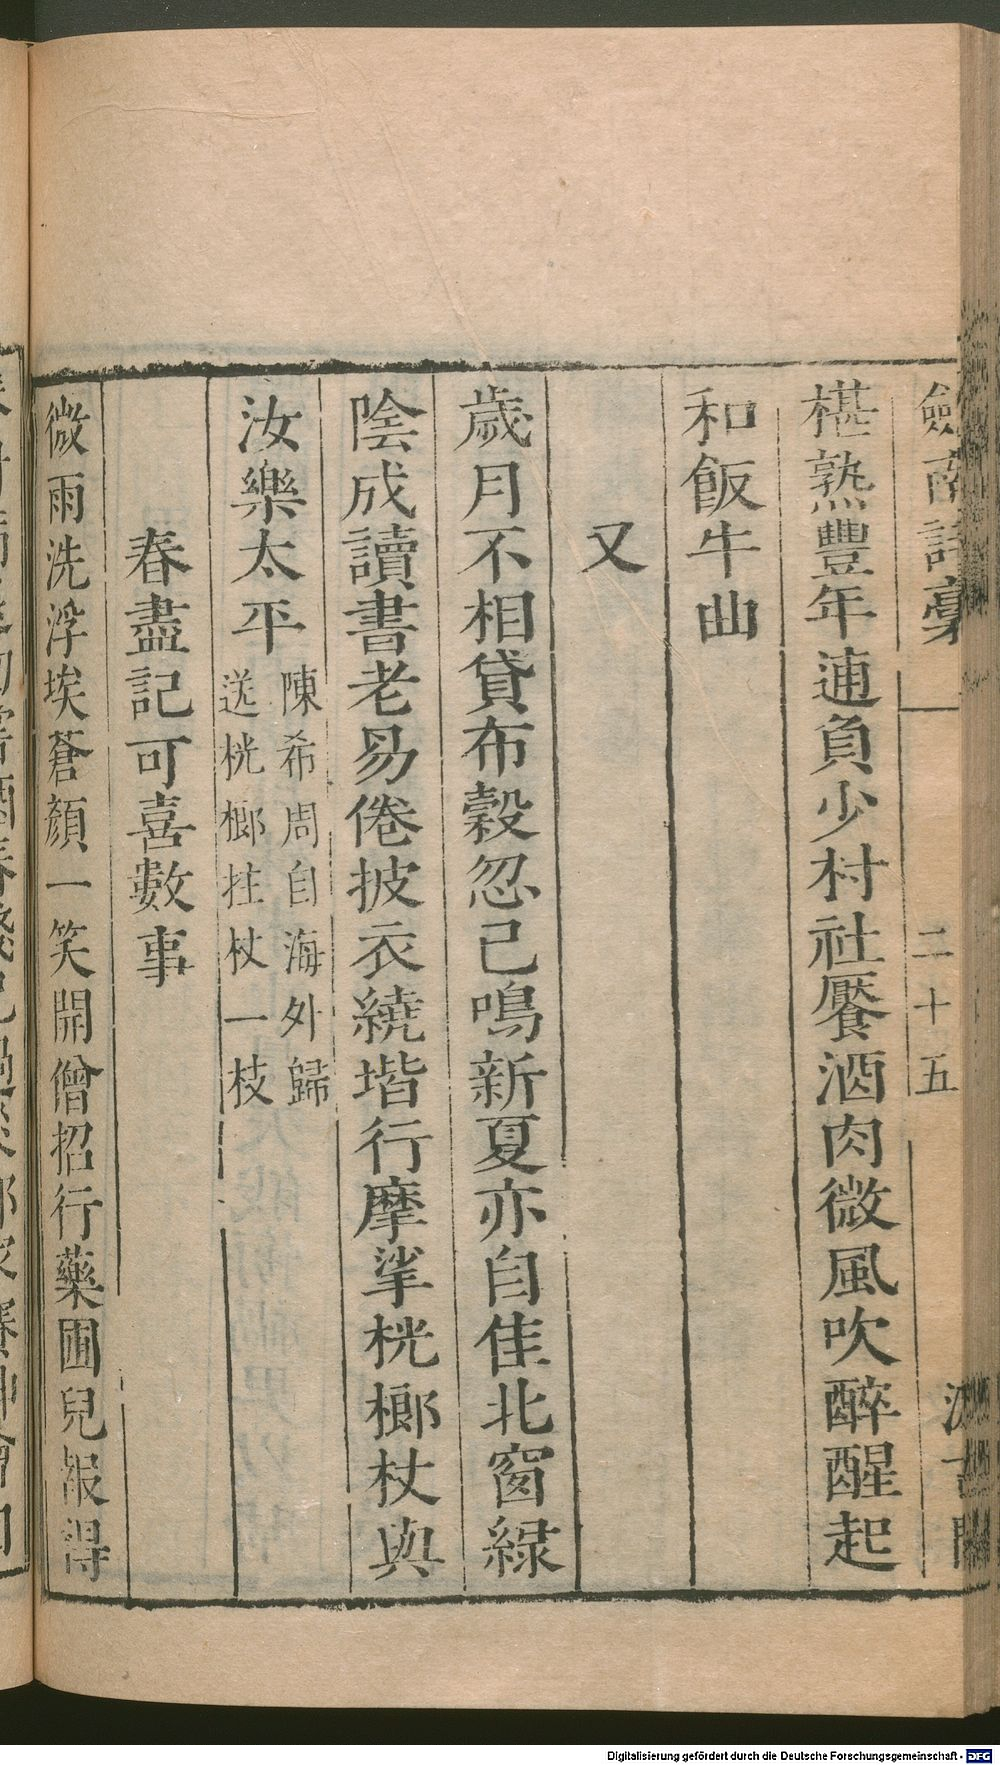 劍南詩稾 二十五
椹熟豐年逋負少村社饜酒肉微風吹醉醒起
和飯牛曲
又
歲月不相貸布穀忽已鳴新夏亦自佳北窗緑
陰成讀書老易倦披衣繞堦行摩挲桄榔杖與
汝樂太平陳希周自海外歸
送桄榔拄杖一枝
春盡記可喜數事
微雨洗浮埃蒼顏一笑開僧招行藥圃兒報得
Digitalisierung gefördert durch die Deutsche Forschungsgemeinschaft - DFG